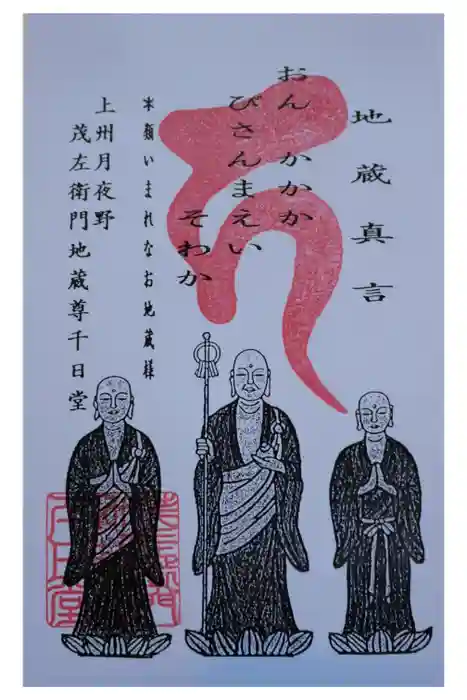 地蔵真言
おん かかか
びさんまえい
そわか
本願いまれなお地蔵様
上州月夜野
茂左衛門地蔵尊千日堂